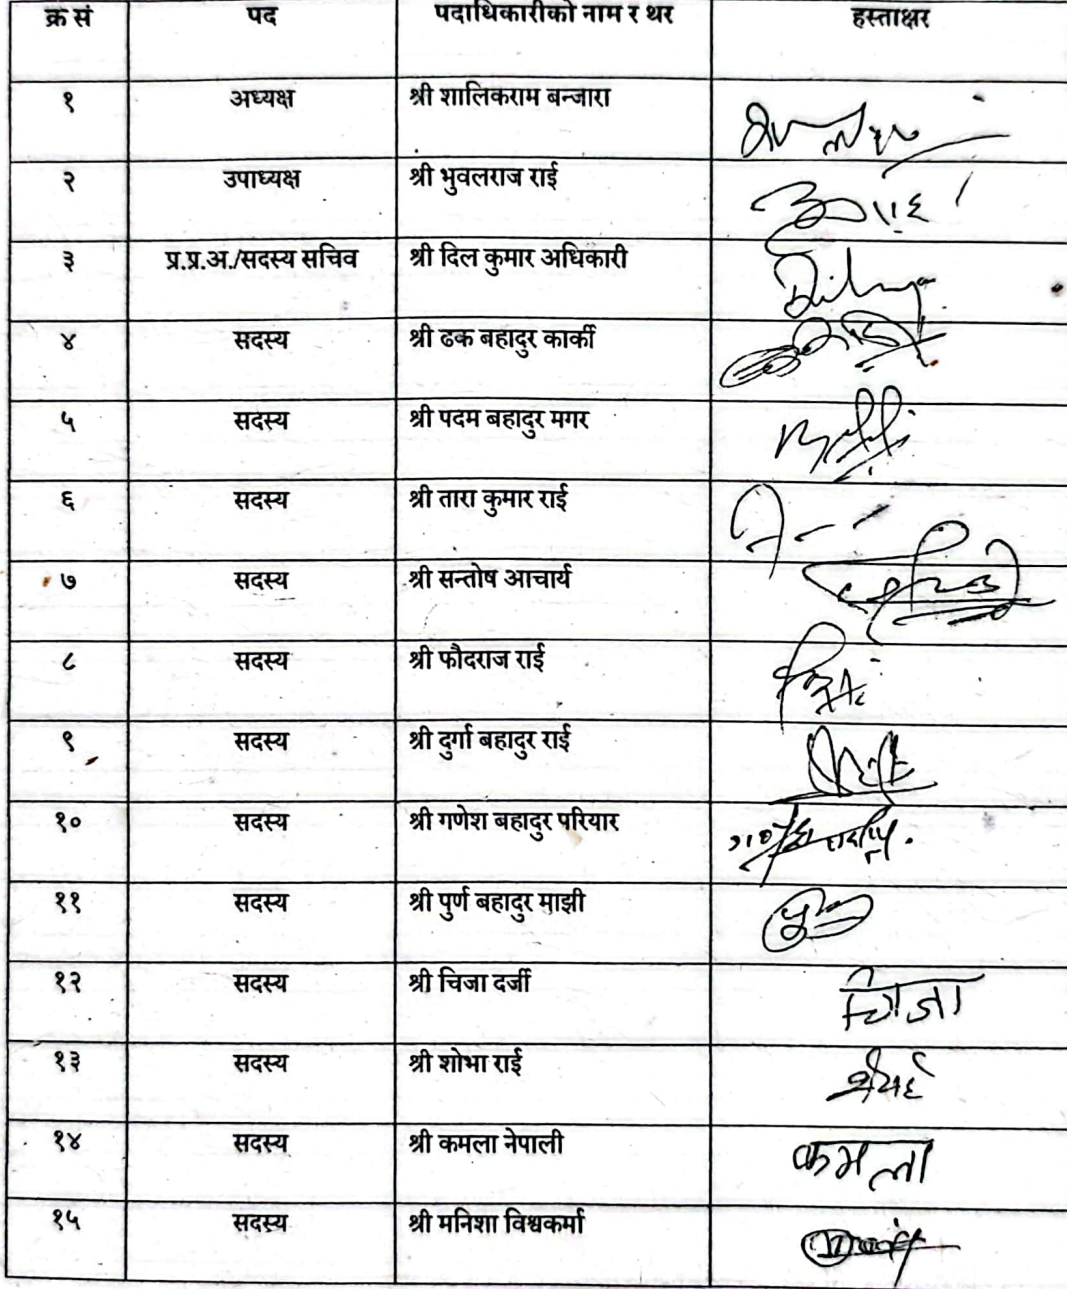 क्र सं पद पदाधिकारीको नाम र थर हस्ताक्षर
१ अध्यक्ष श्री शालिकराम बन्जारा
२ उपाध्यक्ष श्री भुवलराज राई
३ प्र.प्र.अ./सदस्य सचिव श्री दिल कुमार अधिकारी
४ सदस्य श्री ढक बहादुर कार्की
५ सदस्य श्री पदम बहादुर मगर
६ सदस्य श्री तारा कुमार राई
७ सदस्य श्री सन्तोष आचार्य
८ सदस्य श्री फौदराज राई
९ सदस्य श्री दुर्गा बहादुर राई
१० सदस्य श्री गणेश बहादुर परियार
११ सदस्य श्री पुर्ण बहादुर माझी
१२ सदस्य श्री चिजा दर्जी चिजा
१३ सदस्य श्री शोभा राई
१४ सदस्य श्री कमला नेपाली कमला
१५ सदस्य श्री मनिशा विश्वकर्मा